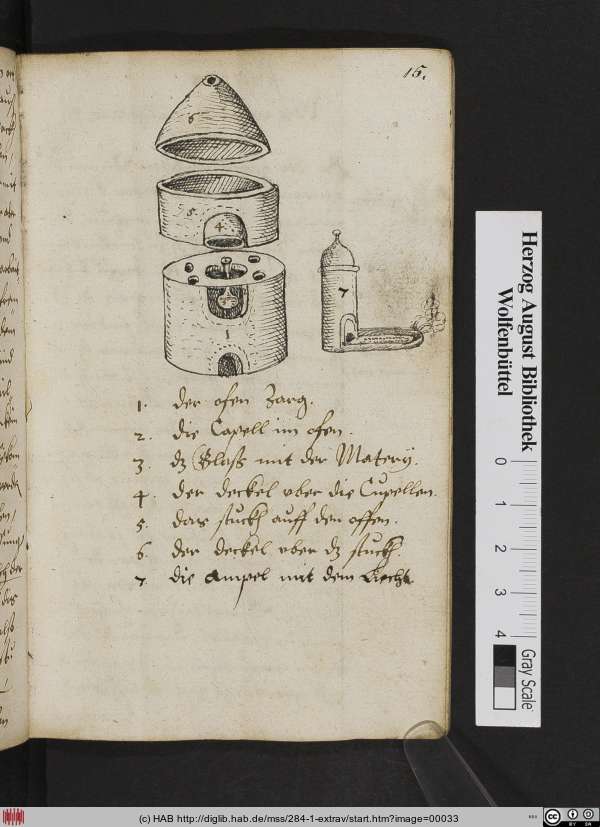 15.
6
5
4
3
1
7
1. der ofen Zarg.
2. die Capell im ofen.
3. dz Glaß mit der Matery.
4. der deckel vber die Cupellen.
5. das stuckh auff den offen.
6. der deckel vber dz stuckh.
7 die Ampel mit dem Liecht
Herzog August Bibliothek
Wolfenbüttel
0 1 2 3 4
Gray Scale
(c) HAB http://diglib.hab.de/mss/284-1-extrav/start.htm?image=00033
cc BY SA